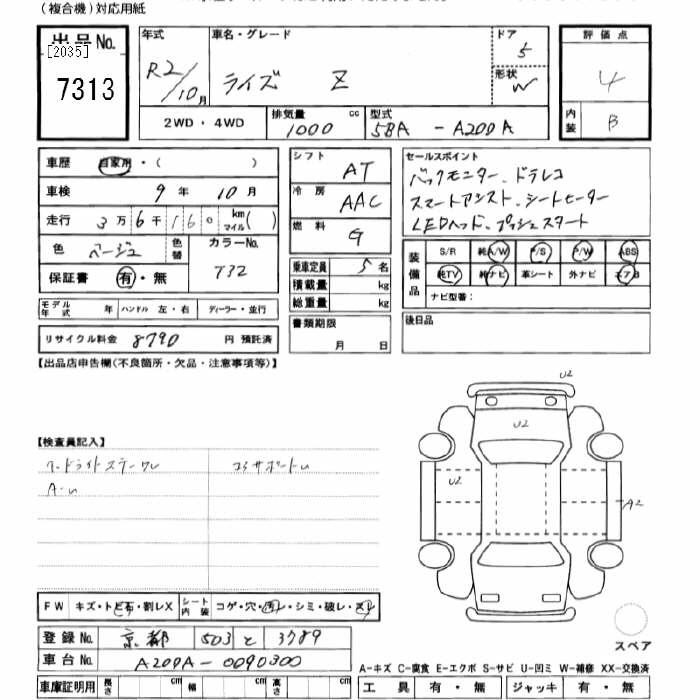 (複合機)対応用紙
出品No.
[2035]
7313
年式
R2/10月
車名・グレード
ライズ Z
ドア
5
形状
W
評価点
4
内装
B
2WD・4WD
排気量
1000 cc
型式
5BA - A200A
車歴 自家用・( )
車検 9年 10月
走行 3万6千160 km マイル( )
色 ベージュ 色替
カラーNo.
T32
保証書 有・無
シフト
AT
冷房
AAC
燃料
G
乗車定員 5名
積載量 kg
総重量 kg
セールスポイント
バックモニター、ドラレコ
スマートアシスト、シートヒーター
LEDヘッド、プッシュスタート
装備品
S/R 純A/W P/S P/W ABS
純TV 純ナビ 革シート 外ナビ エアB
ナビ型番:
モデル年式 年 ハンドル 左・右 ディーラー・並行
リサイクル料金 8790 円 預託済
書類期限
月 日
後日品
【出品店申告欄(不良箇所・欠品・注意事項等)】
【検査員記入】
コアサポートU
A-U
U2
U2
U2
A2
FW キズ・トビ石・割レX シート内装 コゲ・穴・汚レ・シミ・破レ・スレ
登録No. 京都 503 と 3789
車台No. A200A-0090300
スペア
A-キズ C-腐食 E-エクボ S-サビ U-凹ミ W-補修 XX-交換済
車庫証明用 長さ cm 幅 cm 高さ cm
工具 有・無 ジャッキ 有・無